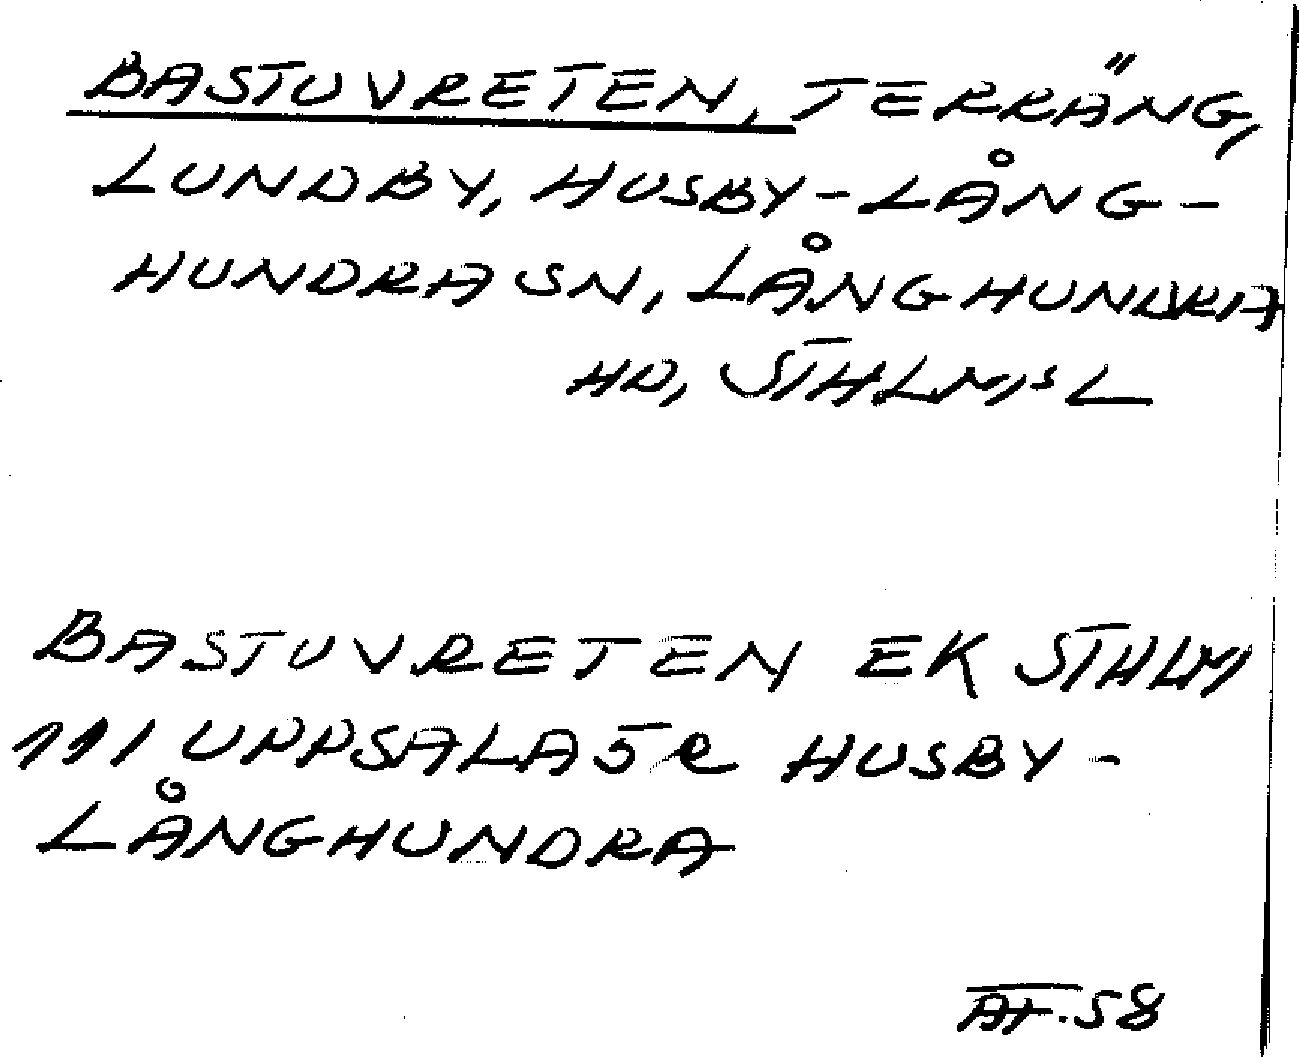 BASTUVRETEN, TERRÄNG,
LUNDBY, HUSBY-LÅNG-
HUNDRA SN, LÅNGHUNDRA
HD, STHLMS L
BASTUVRETEN EK STHLM
111 UPPSALA 5 e HUSBY-
LÅNGHUNDRA
AF.58